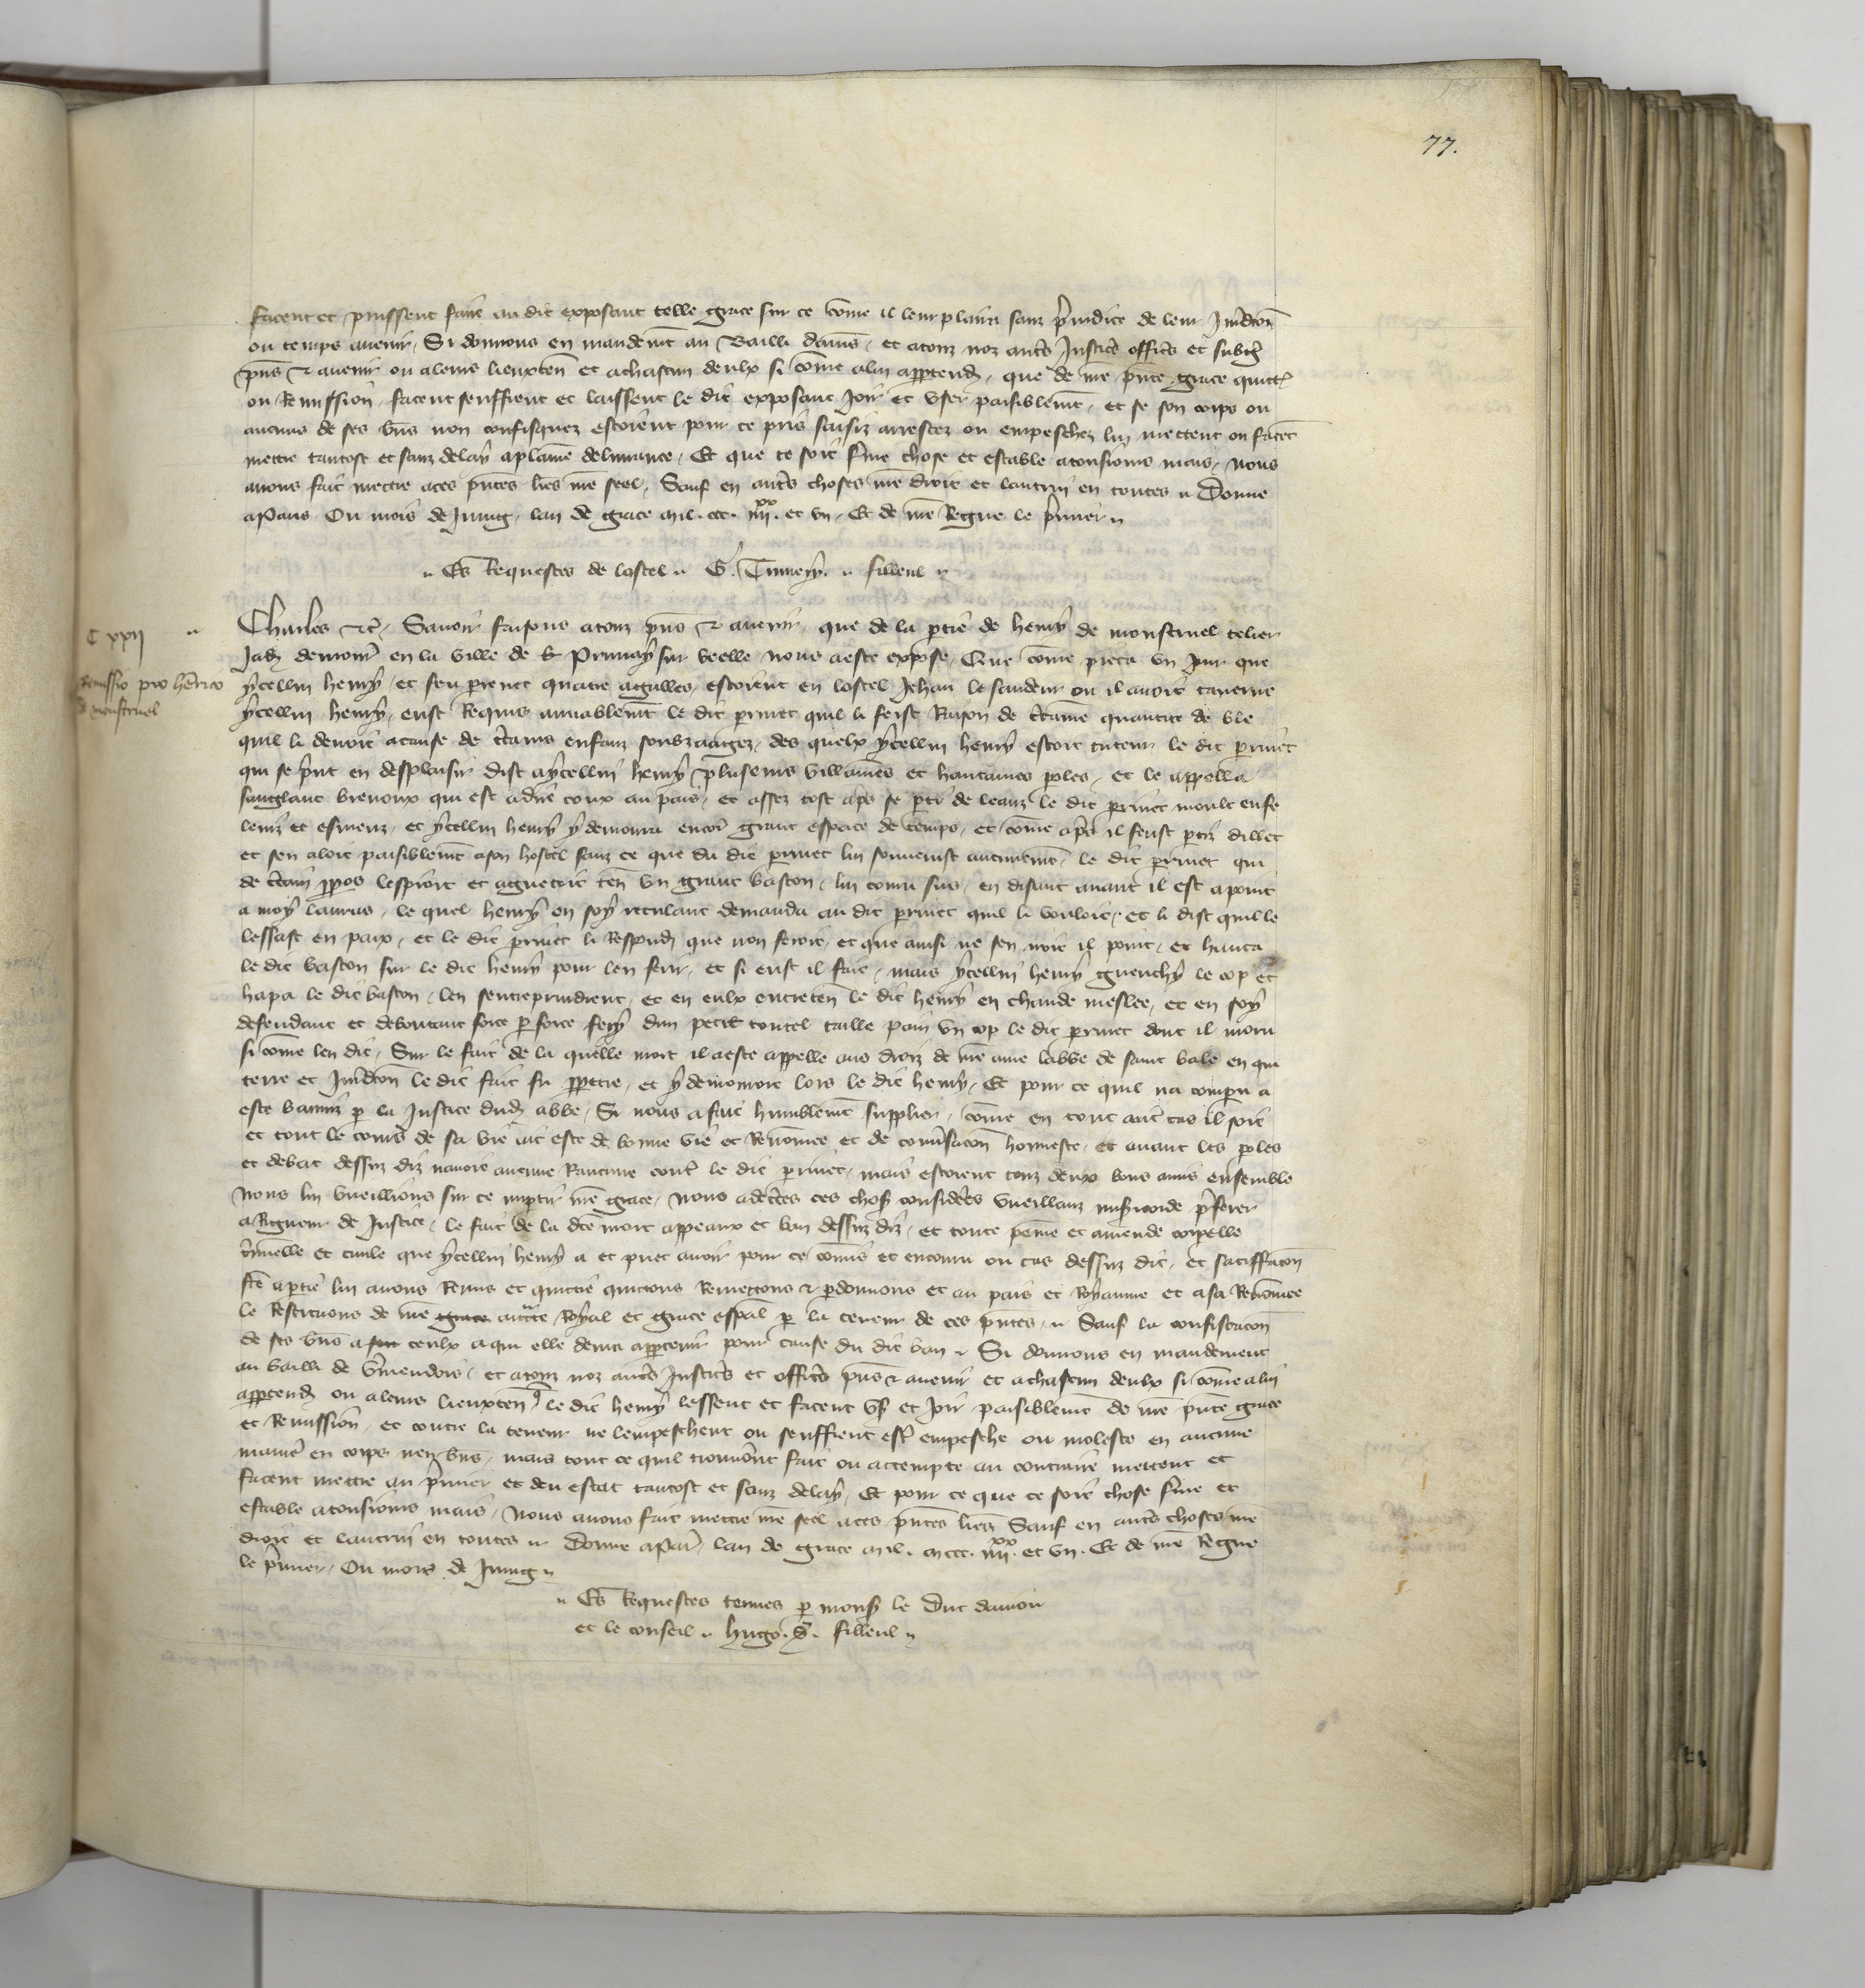 77.
facent et puissent faire au dit exposant telle grace sur ce come il leur plaira sanz preiudice de leur Juridicon
ou temps auenir, Si donnons en mandemt au Bailli damns, et a touz noz autrs Justicrs officrs et subgz
pns & auenir ou a leurs lieuxten et a chascun deulx si come a lui apptendr, que de nre pnte grace quitte
ou Remission facent seuffrent et laissent le dit exposant Joir et vser paisiblemt, et se son corps ou
aucuns de ses bns non confisquez estoient pour ce pris saisiz arrestez ou empeschez lui mettent ou facet
mettre tantost et sanz delay a plaine deliurance, Et que ce soit ferme chose et estable a tousiours mais, nous
auons fait mettre a ces pntes lres nre seel, Sauf en autrs choses nre droit et lautruy en toutes Donne
a Paris Ou mois de Juing, lan de grace mil. ccc. iiijxx. et vn, Et de nre Regne le pmier
Es Requestes de lostel G. filleul
C xxij
Remissio pro henrico
de monstruel
Charles etc, Sauoir faisons a touz pns & auenir, que de la ptie de henry de monstruel telier
Jadz demourt en la ville de Prunay sur veelle nous a este expose, Que come pieca vn Jour que
ycellui henry, et feu perinet quatre aiguilles, estoient en lostel Jehan le ou il auoit tauerne
ycellui henry, eust Requis amiablemt le dit perinet quil li feist Raison de ctaine quantite de ble
quil li deuoit a cause de ctains enfans soubzaagez, des quelx ycellui henry estoit tuteur le dit perinet
qui se print en desplaisir dist a ycellui henry plusieurs villaines et hautaines poles, et le appella
sanglant brenoux qui est a dire coux au pais, et assez tost aps se pti de leanz le dit perinet moult enfe
lenz et esmeuz, et ycellui henry y demoura encor grant espace de temps, et come apres il feust ptiz dillec
et sen aloit paisiblemt a son hostel sanz ce que du dit perinet lui souuenist aucunemt, le dit perinet qui
de ctain ppos lespioit et aguettoit ten vn grant baston, lui couru sus, en disant auant il est a point
a moy larras, le quel henry en soy reculant demanda au dit perinet quil li vouloit, et li dist quil le
lessast en paix, et le dit perinet li Respondi que non feroit, et que ainsi ne sen iroit il point, et hauca
le dit baston sur le dit henry pour len ferir, et si eust il fait, mais ycellui henry guenchy le cop et
hapa le dit baston, len sentreprindrent, et en eulx entreten le dit henry en chaude meslee, et en soy
defendant et deboutant force p force fery dun petit coutel taille pain vn cop le dit perinet dont il moru
si come len dit, Sur le fait de la quelle mort il a este appelle aus droiz de nre ame labbe de saint basle en qui
terre et Juridicon le dit fait fu ppetre, et y demouroit lors le dit henry, Et pour ce quil na comparu a
este banniz p la Justice dudit abbe, Si nous a fait humblemt supplier, come en tout autre cas il soit
et tout le cours de sa vie ait este de bonne vie et Renomee et de conuersacon honneste, et auant les poles
et debat dessuz diz nauoit aucune Rancune contre le dit perinet, mais estoient touz deux bons amis ensemble
nous lui vueillions sur ce impartir nre grace, Nous adcertes ces choses considrees vueillanz misericorde preferer
a Rigueur de Justice, le fait de la dte mort appeaux et ban dessuz diz, et toute peine et amende corpelle
criminelle et ciuile que ycellui henry a et puet auoir pour ce comis et encouru ou cas dessuz dit, et satiffacon
fte a ptie lui auons Remis et quittie quittons Remettons & pdonnons et au pais et Royaume et a sa Renomee
le Restituons de nre grace auctte Royal et grace espal p la teneur de ces pntes Sauf la confiscacon
de ses bns a ceulx a qui elle deura apptenir pour cause du dit ban Si donnons en mandement
au bailli de Vmendois, et a touz noz autrs Justicrs et officrs pns & auenir et a chascun deulx si come a lui
apptendra ou a leurs lieuxten q le dit henry lessent et facent vser et Joir paisiblemt de nre pnte grace
et Remission, et contre la teneur ne lempeschent ou seuffrent estre empesche ou moleste en aucune
manie en corps nen bns, mais tout ce quil trouueront fait ou attempte au contraire mettent et
facent mettre au pmier et deu estat tantost et sanz delay, Et pour ce que ce soit chose ferme et
estable a tousiours mais, Nous auons fait mettre nre seel a ces pntes lres Sauf en autrs choses nre
droit et lautruy en toutes Donne a Paris, lan de grace mil. ccc. iiijxx. et vn. Et de nre Regne
le pmier, Ou mois de Juing
Es Requestes tenues p monsr le Duc daniou
et le conseil hugo. filleul